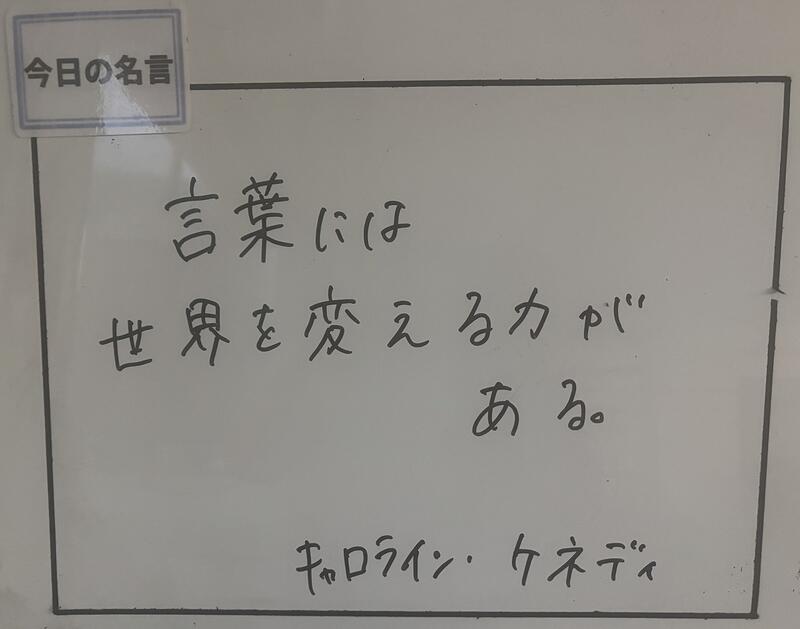 今日の名言
言葉には
世界を変える力が
ある。
キャロライン・ケネディ